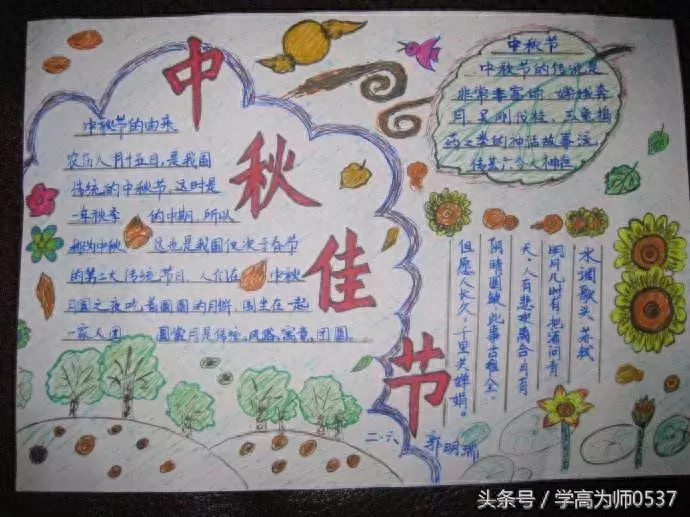 中秋佳节
中秋节的由来
农历八月十五日,是我国
传统的中秋节,这时是
一年秋季 的中期,所以
称为中秋 这也是我国仅次于春节
的第二大传统节日,人们在 中秋
月圆之夜吃着圆圆的月饼,围坐在一起
一家人团 圆赏月是传统,
寓意,团圆。
中秋节
中秋节的传说是
非常丰富的,嫦娥奔
月,吴刚伐桂,玉兔捣
药之类的神话故事流
传甚
水调歌头 苏轼
明月几时有把酒问青
天。人有悲欢离合月有
阴晴圆缺此事古难全。
但愿人长久,千里共婵娟。
二.六 郭明瑞
头条号 / 学高为师0537